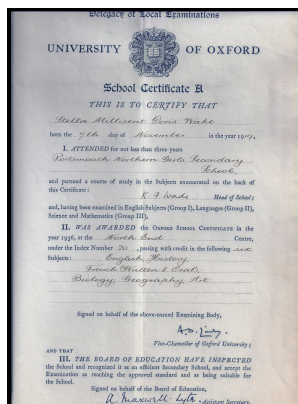 Delegacy of Local Examinations
UNIVERSITY OF OXFORD
School Certificate A
THIS IS TO CERTIFY THAT
Stella Millicent Doris Wake
born the 7th day of November in the year 1919,
I. ATTENDED for not less than three years
Portsmouth Northern Girls Secondary
School
and pursued a course of study in the Subjects enumerated on the back of
this Certificate:
K. F. Wade Head of School;
and, having been examined in English Subjects (Group I), Languages (Group II),
Science and Mathematics (Group III),
II. WAS AWARDED the OXFORD SCHOOL CERTIFICATE in the
year 1936, at the North End Centre,
under the Index Number 20, passing with credit in the following six
Subjects: English, History,
French (Written & Oral),
Biology, Geography, Art
Signed on behalf of the above-named Examining Body,
A. D. Lindsay
Vice-Chancellor of Oxford University;
AND THAT
III. THE BOARD OF EDUCATION HAVE INSPECTED
the School and recognized it as an efficient Secondary School, and accept the
Examination as reaching the approved standard and as being suitable for
the School.
Signed on behalf of the Board of Education,
A. Maxwell-Lyte Assistant Secretary.